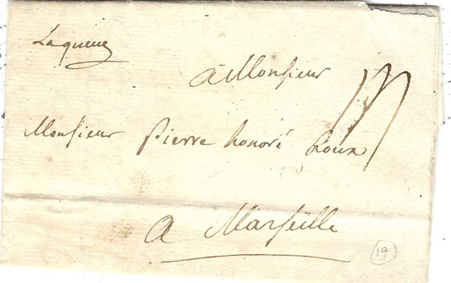 Laqueux
A Monsieur
Monsieur pierre honoré Roux
A Marseille
19